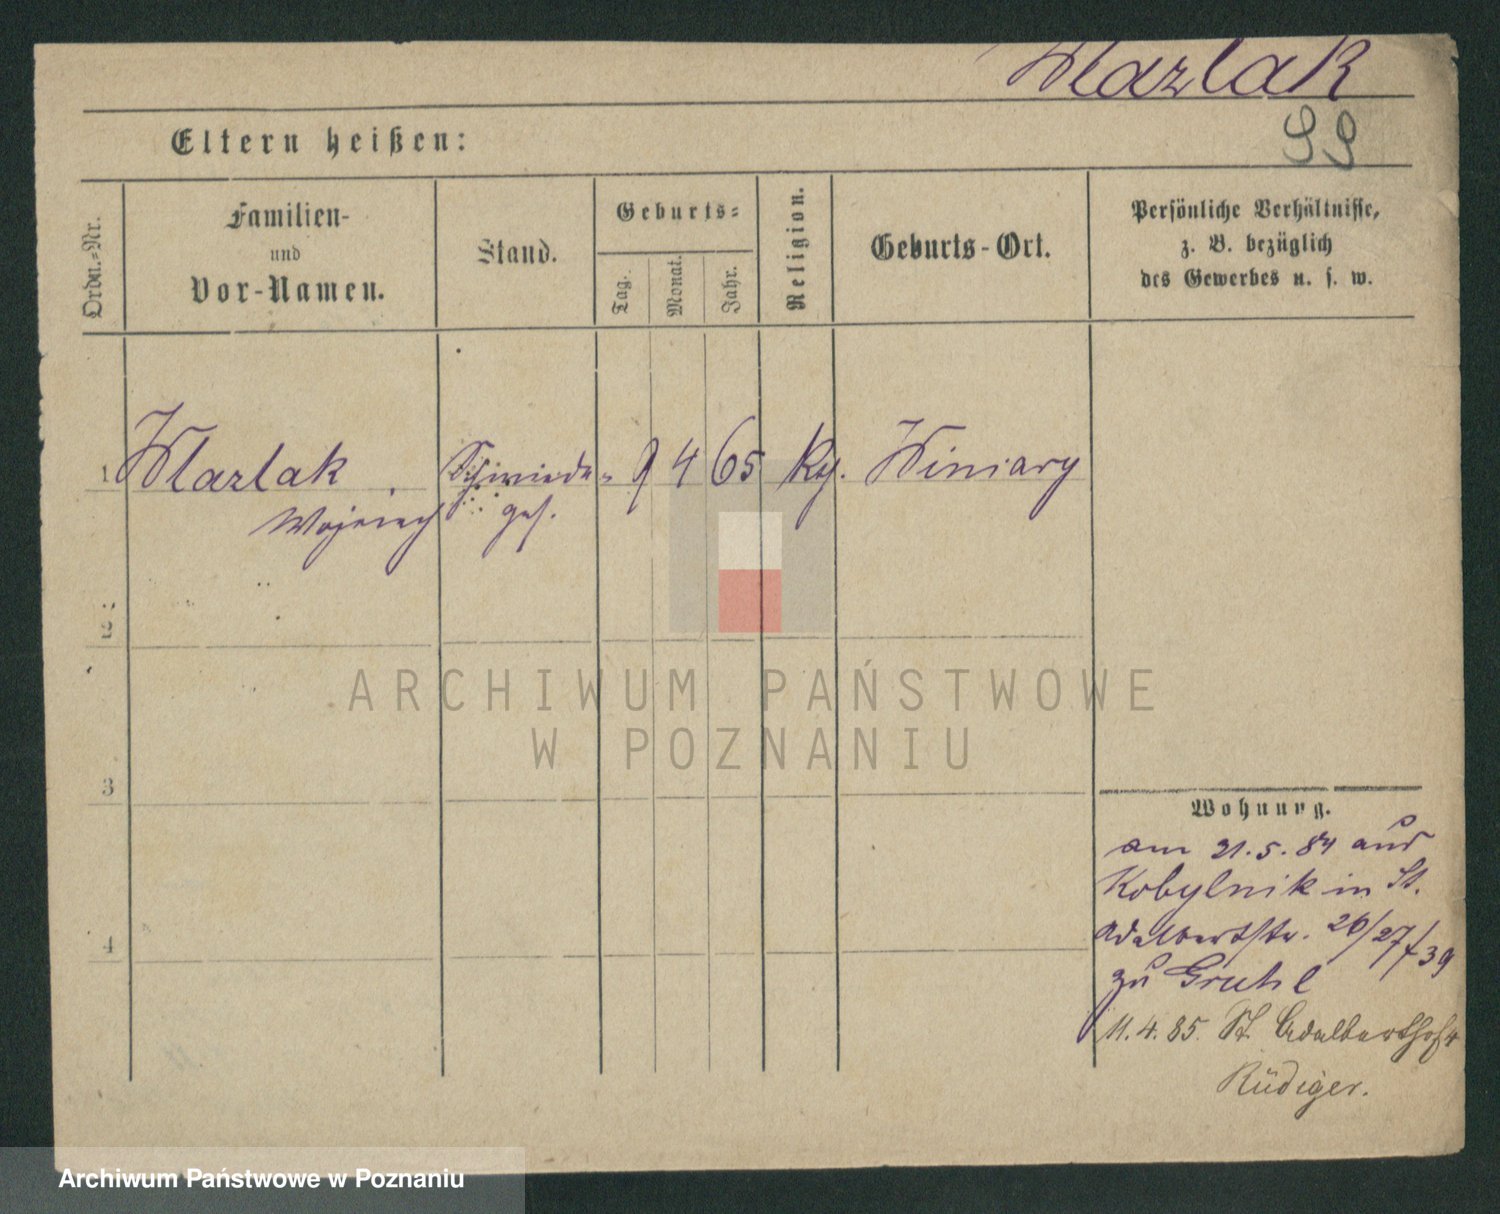 Wlazlak
99
Eltern heißen:
Ordn.-Nr.
Familien-
und
Vor-Namen.
Stand.
Geburts-
Tag.
Monat.
Jahr.
Religion.
Geburts-Ort.
Persönliche Verhältnisse,
z. B. bezüglich
des Gewerbes u. s. w.
1 Wlazlak Schmiede- 9 4 65 kg. Winiary
Wojciech ges.
2
3
4
Wohnung.
am 21.5.84 aus
Kobylnik in St.
Adalbertstr. 26/27/39
zu Gruhl
11.4.85. St. Adalberthof 4
Rüdiger.
ARCHIWUM PAŃSTWOWE
W POZNANIU
Archiwum Państwowe w Poznaniu